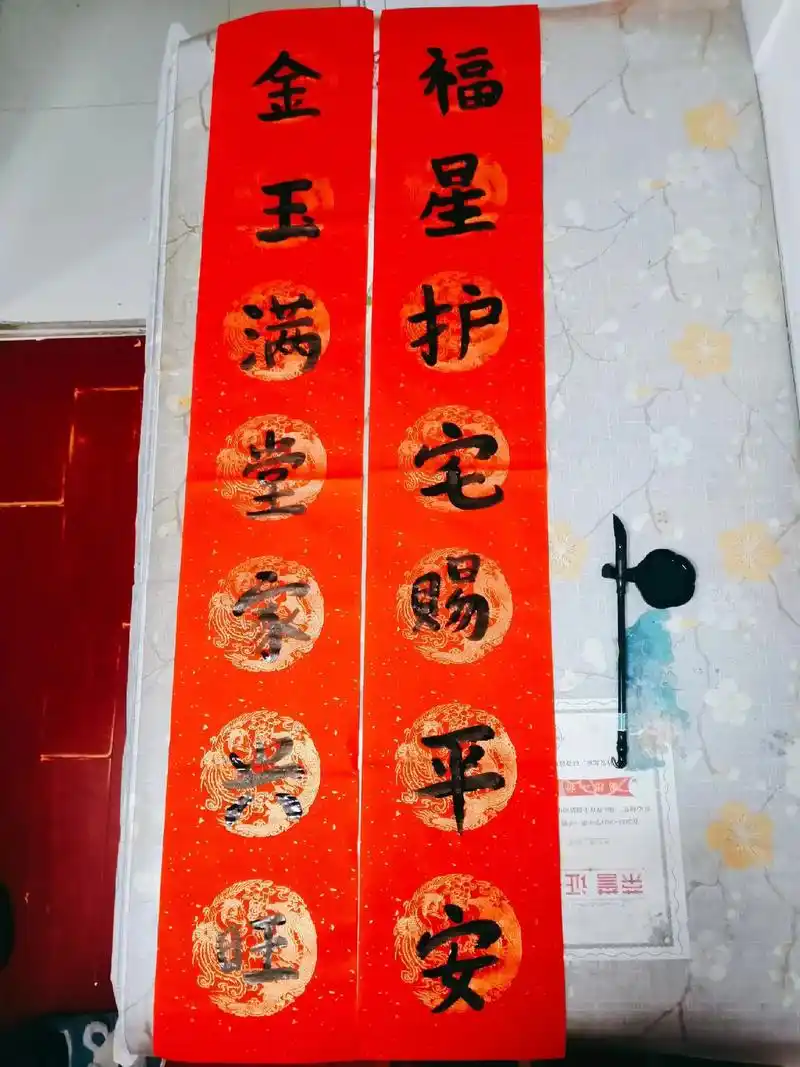 福星护宅赐平安
金玉满堂家兴旺
荣誉证